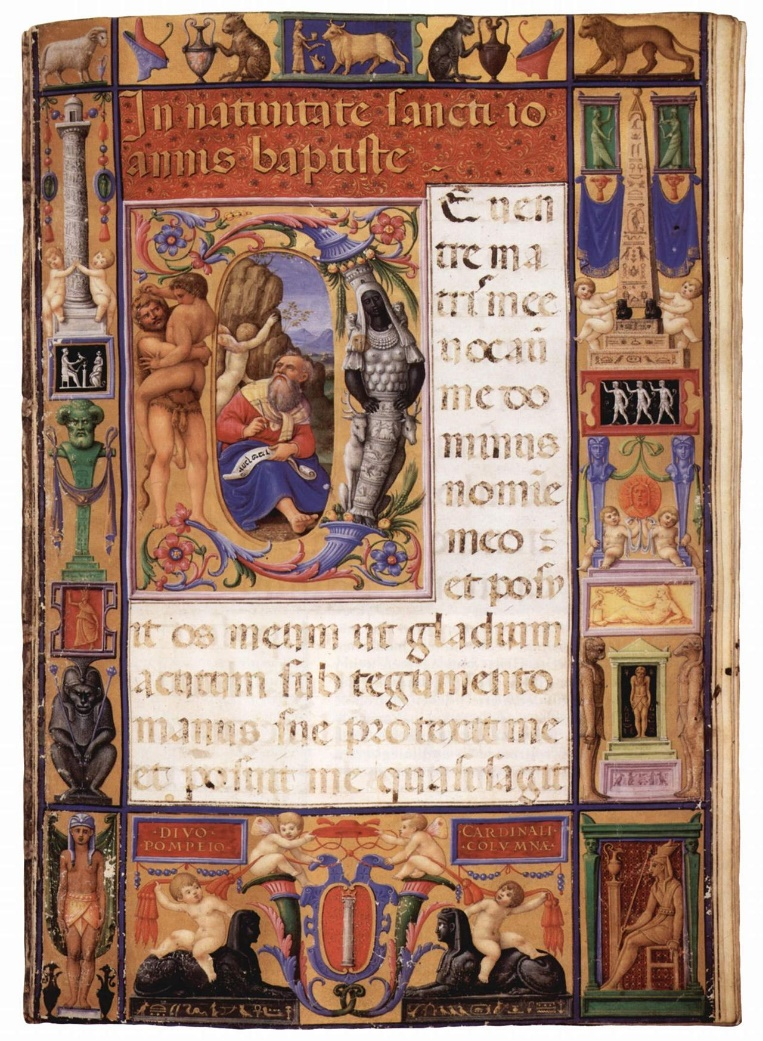 In natiuitate sancti io
annis baptiste
DE uen
tre ma
tris mee
uocaũ
me do
minus
nomīe
meo
et posu
it os meum ut gladium
acutum sub tegumento
manus sue protexit me
et posuit me quasi sagit
·DIVO·
POMPEIO·
CARDINALI
·COLVMNÆ·